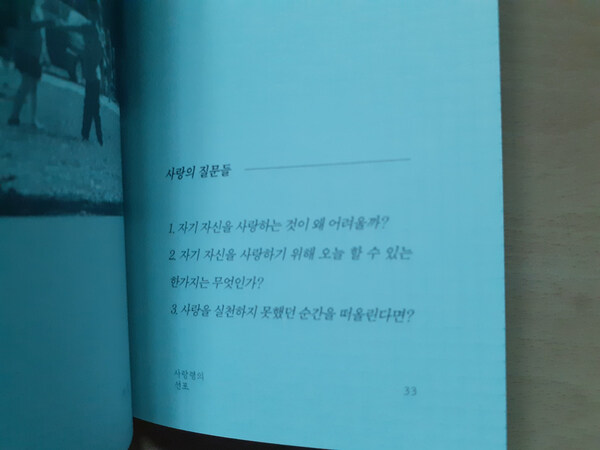 사랑의 질문들
1. 자기 자신을 사랑하는 것이 왜 어려울까?
2. 자기 자신을 사랑하기 위해 오늘 할 수 있는
한가지는 무엇인가?
3. 사랑을 실천하지 못했던 순간을 떠올린다면?
선포
33